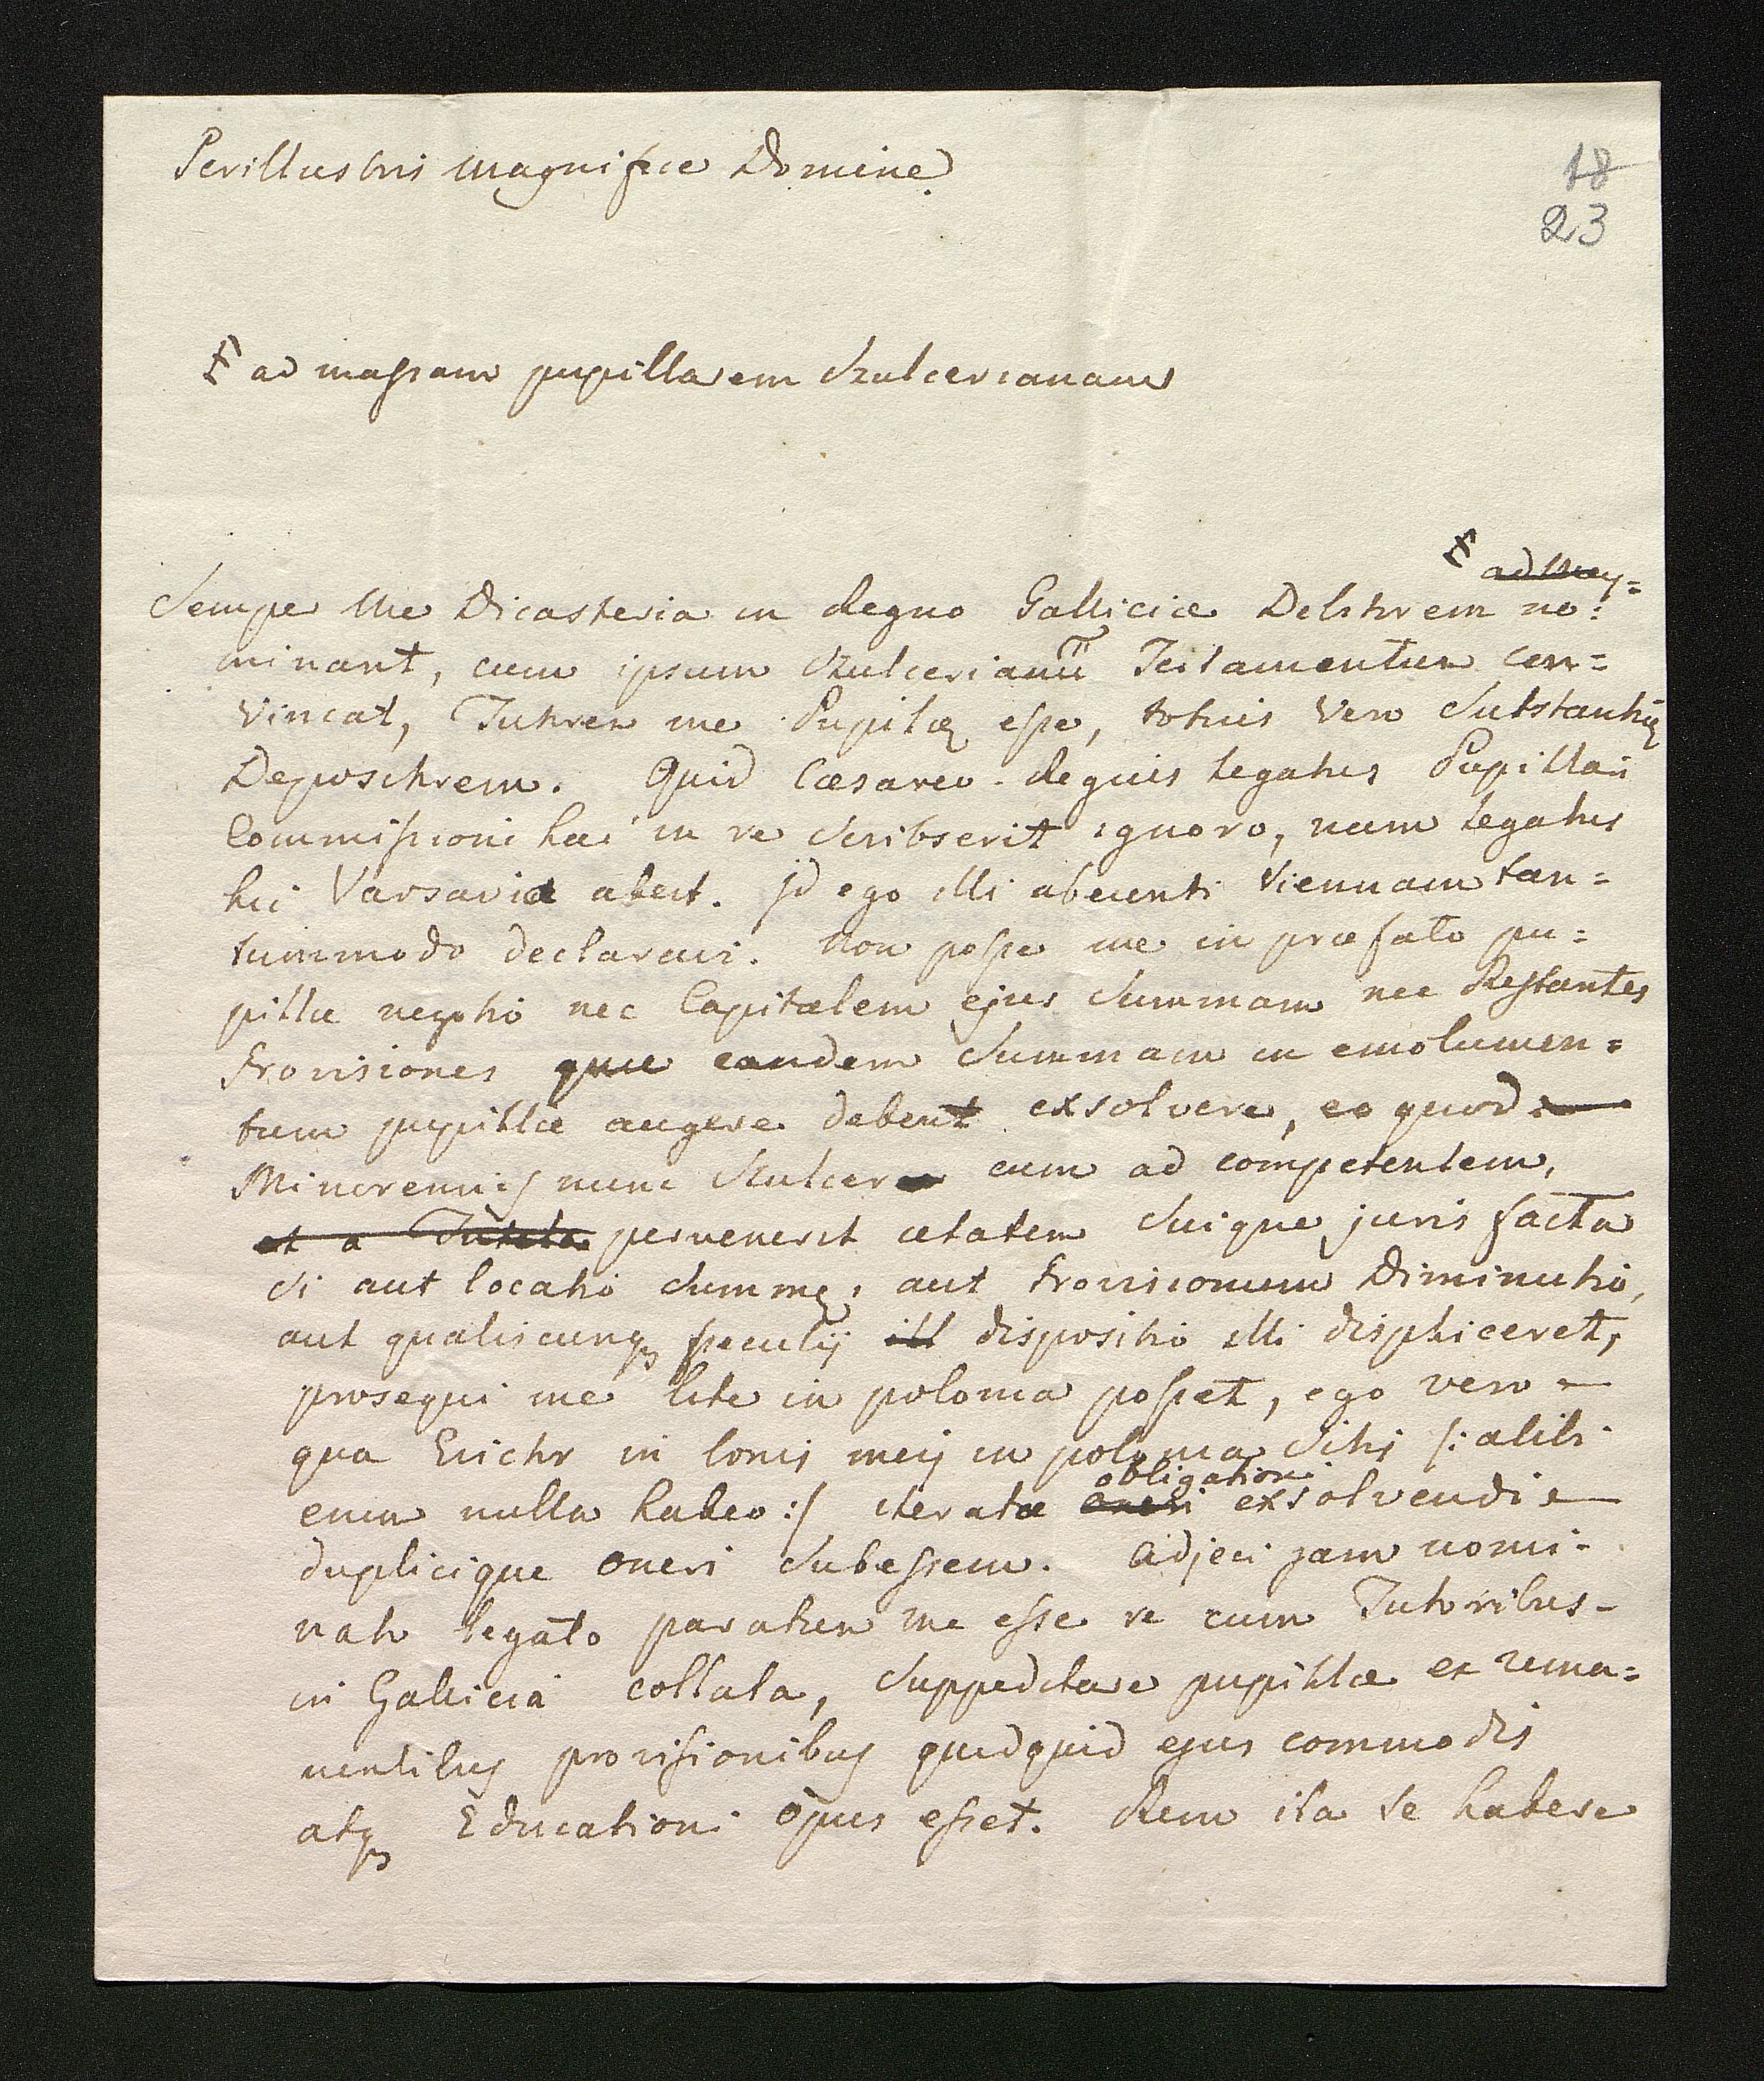 Perillustris Magnifice Domine
18
23
ad massam pupillarem Szulcerianam
ad Mey=
Semper Me Dicasteria in Regno Galliciæ Debitorem no=
minant, cum ipsum Szulcerianũ Testamentum con=
vincat, Tutorem me Pupilæ esse, totius vero Substantiæ
Depositorem. Quid Cæsareo-Regius Legatus Pupillari
Commissioni hac in re Scribserit ignoro, nam Legatus
hic Varsavia abest. Id ego illi abeunti Viennam tan=
tummodo declaravi. Non posse me in præfato pu=
pillæ negotio nec Capitalem ejus Summam nec Restantes
Provisiones quæ eandem Summam in emolumen=
tum pupillæ augere debent exsolvere, eo quod
Minorennis nunc Szulcer cum ad competentem,
et a Tutela pervenerit ætatem Suique juris facta
Si aut locatio Summæ, aut Provisionum Diminutio,
aut qualiscunq peculij ill dispositio illi displiceret,
prosequi me lite in polonia posset, ego vero
qua Evictor in bonis meis in polonia Sitis /: alibi
obligationi
enim nulla habeo :/ iteratæ oneri exsolvendi
duplicique oneri Subessem. Adjeci jam nomi-
nato Legato paratum me esse re cum Tutoribus
in Gallicia collata, Suppeditare pupillæ ex rema=
nentibus provisionibus quidquid ejus commodis
atq Educationi opus esset. Rem ita se habere